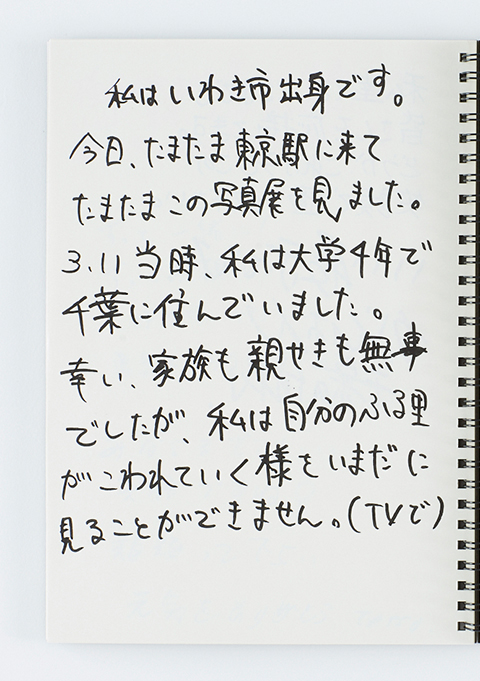 私はいわき市出身です。
今日、たまたま東京駅に来て
たまたまこの写真展を見ました。
3.11当時、私は大学4年で
千葉に住んでいました。
幸い、家族も親せきも無事
でしたが、私は自分のふる里
がこわれていく様をいまだに
見ることができません。(TVで)